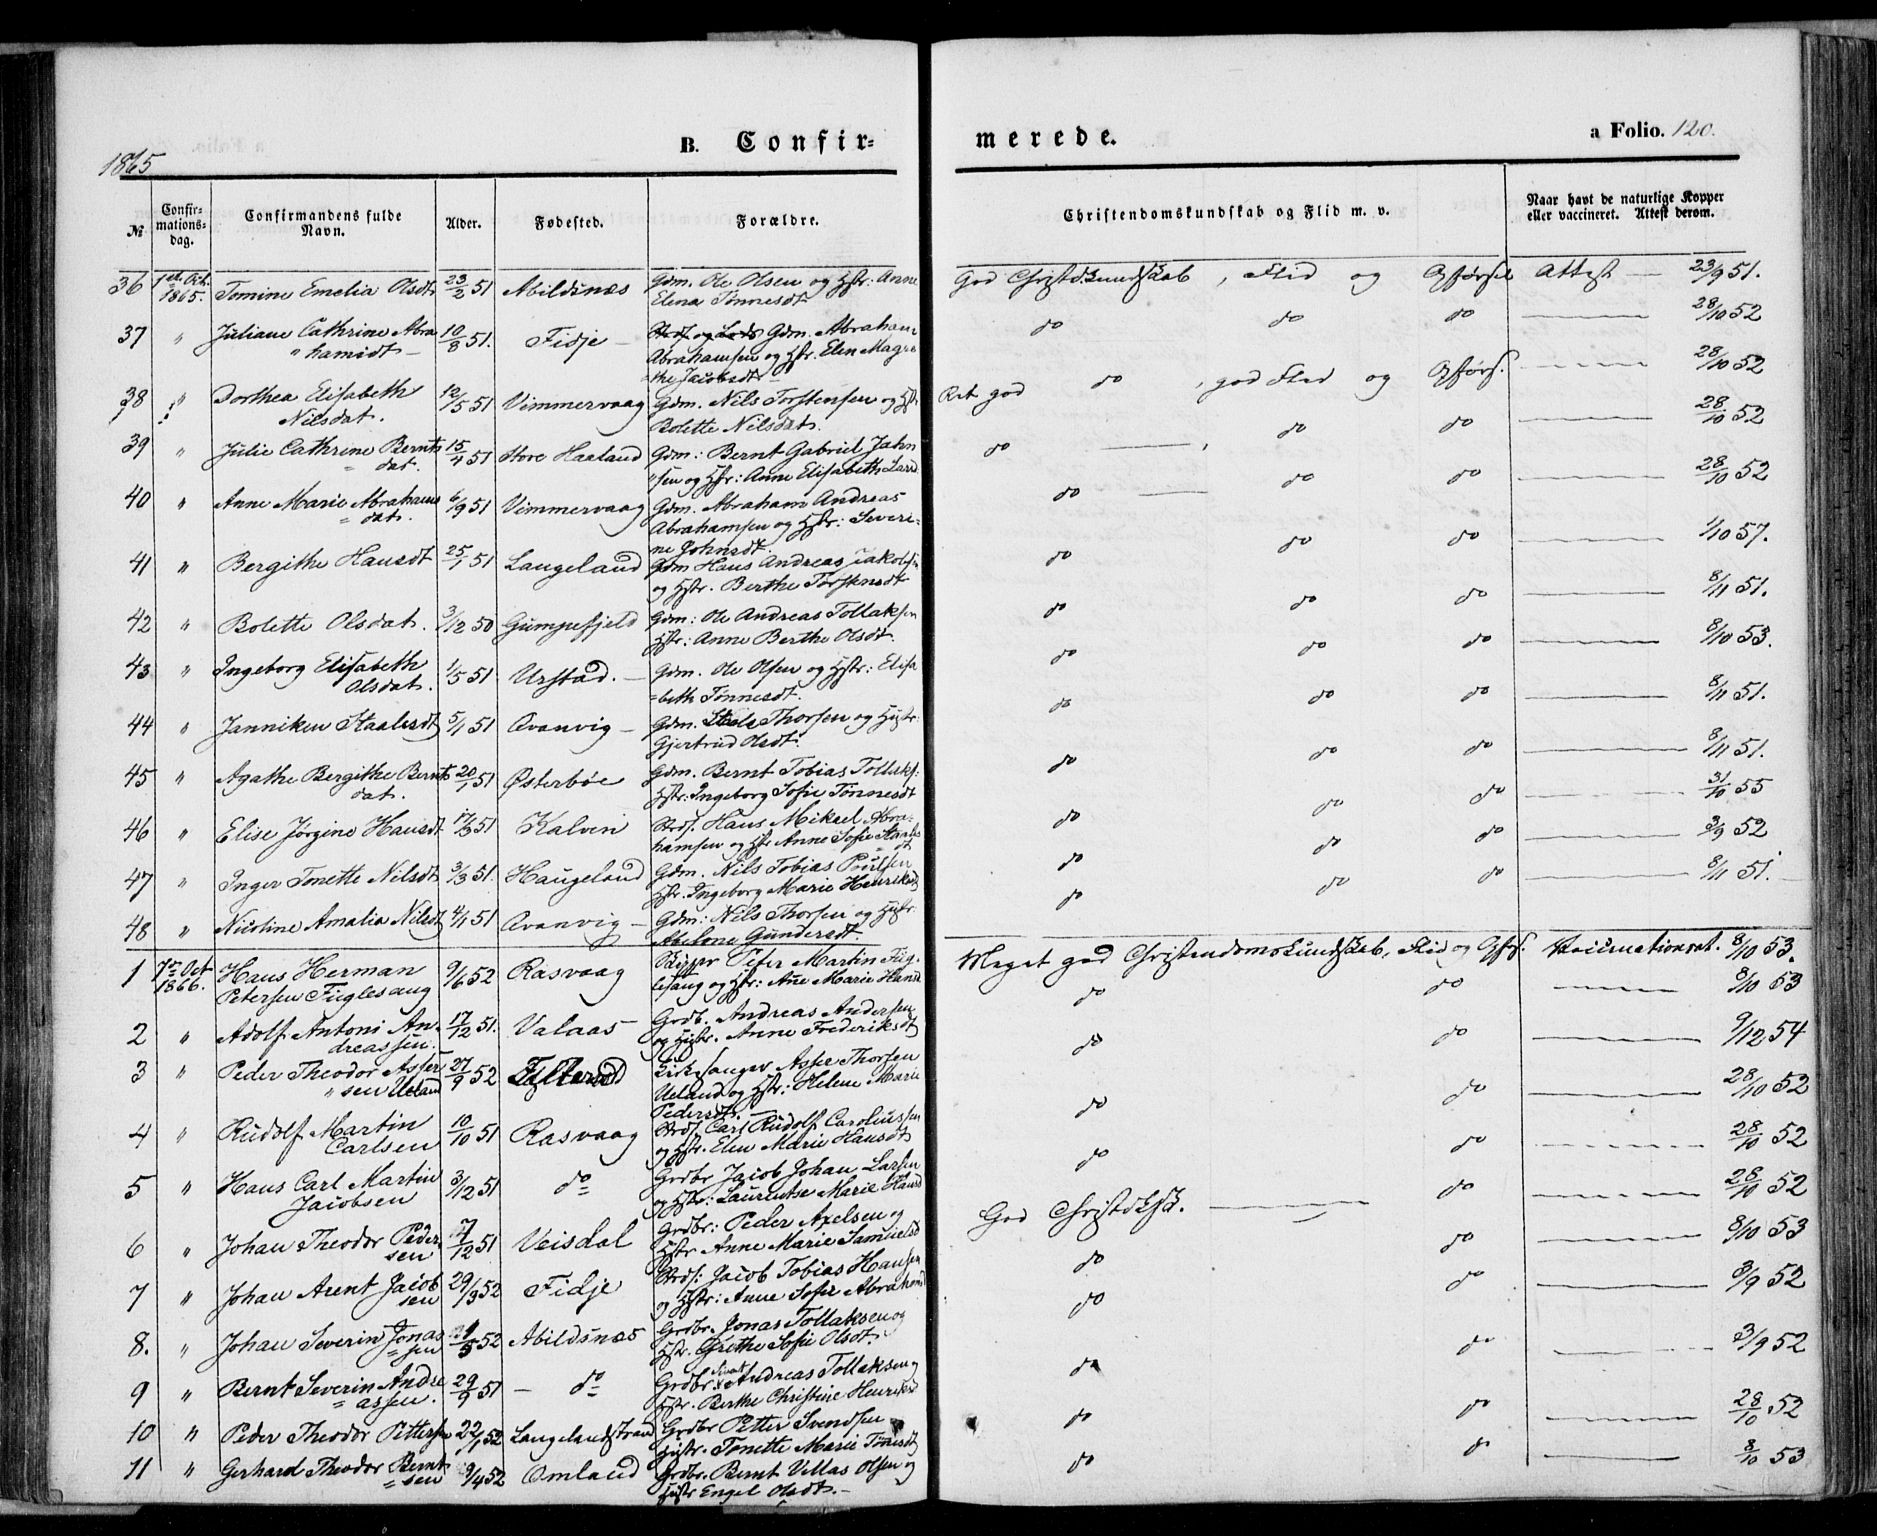 1865
B. Confir-
merede.
a Folio. 120.
№
Confir-
mations-
dag.
Confirmandens fulde
Navn.
Alder.
Fødested.
Forældre.
Christendomskundskab og Flid m. v.
Naar havt de naturlige Kopper
eller vaccineret. Attest derom.
36 1ste Oct. 1865. Tomine Emelia Olsdt 23/2 51 Abildsnæs Gdm. Ole Olsen og Hstr: Anne
Elena Tønnesdt
God Christd.kundskab, Flid og Opførsel Attest — 23/9 51.
37 " Juliane Cathrine Abra
hamsdt 10/8 51. Fidje — Gdm. Abraham
Abrahamsen og Hstr. Elen Magre
the Jacobsdt
do do do — 28/10 52
38 " Dorthea Elisabeth
Nilsdat. 12/5 51 Vimmervaag Gdm. Nils Torstensen og Hstr
Bolette Nilsdat.
Ret god do, god Flid og Opførs. — 28/10 52
39 " Julie Cathrine Bernts
dat. 15/4 51 Store Haaland Gdm: Bernt Gabriel Jahn
sen og Hstr: Anne Elisabeth
do — , do do — 28/10 52
40 " Anne Marie Abrahams
dat. 6/9 51 Vimmervaag Gdm. Abraham Andreas
Abrahamsen og Hstr: Severi-
ne Johnsdt.
do — do do — 28/10 52
41 " Bergithe Hansdt 25/1 51 Langeland Gdm Hans Andreas Jakobsen
og Hstr. Berthe Torstensdt
do do do — 1/10 57.
42 " Bolette Olsdat. 3/12 50 Gumpefjeld Gdm: Ole Andreas Tollaksen
Hstr: Anne Berthe Olsdt.
do do do — 8/11 51.
43 " Ingeborg Elisabeth
Olsdat. 1/5 51 Urstad. — Gdm. Ole Olsen og Hstr: Elisa
beth Tønnesdt.
do do do — 8/10 53.
44 " Janniken Staalesdt 5/1 51 Qvanvig — Gdm. Thorsen og Hustr:
Gjertrud Olsdt.
do do do — 8/11 51.
45 " Agathe Bergithe Bernts
dat. 20/1 51 Østerbøe Gdm. Bernt Tobias Tollaks:
Hstr: Ingeborg Sofie Tønnesdt
do do do — 8/11 51.
46 " Elise Jørgine Hansdt 17/3 51 Kalven Strds. Hans Mikael Abra-
hamsen og Hstr Anne Sofie
do do do — 31/10 55
47 " Inger Tonette Nilsdt 3/3 51. Haugeland Gdm. Nils Tobias Poulsen
Hstr. Ingeborg Marie Henriksdt
do do do — 3/9 52
48 " Nicoline Amalia Nilsdt 4/1 51 Qvanvig — Gdm: Nils Thorsen og Hustr.
Abelone Gundersdt.
do do do — 8/11 51.
1 7de Oct 1866. Hans Herman
Petersen Fuglesang 9/6 52 Rasvaag Skipper Peter Martin Fug
lesang og Hstr: Ane Marie Hansd
Meget god Christendomskundskab, Flid og Opfs: Vaccinationsat. 8/10 53.
2 " Adolf Antoni An-
dreassen. 17/12 51. Valaas Grdb. Andreas Andersen
og Hustr. Anne Frederiksdt
do do — 8/10 53
3 " Peder Theodor Asser
sen Ueland 27/9 52 Kirkesanger Thorsen
Ueland og Hstr: Helene Marie
Pedersdt. —
do do — 9/12 54
4 " Rudolf Martin
Carlsen 10/10 51 Rasvaag Strds. Carl Rudolf Caroliussen
og Hstr. Elen Marie Hansdt
do do — 28/10 52
5 " Hans Carl Martin
Jacobsen 3/12 51 do Grdbr Jacob Johan Larsen
og Hstr: Laurentse Marie Hansd
do do — 28/10 52
6 " Johan Theodor Peder
sen 7/12 51 Veisdal Grdbr: Peder Axelsen og
Hstr Anne Marie Samuelsd
God Christdksk. — do — 28/10 52
7 " Johan Arent Jacob
sen 29/3 52 Fidje Strds: Jacob Tobias Hansen
og Hstr: Anne Sofie Abrahamd
do do — 8/10 53
8. " Johan Severin Jonas
sen /5 52 Abildsnæs Grdbr. Jonas Tollaksen og
Hstr. Grethe Sofie Olsdt.
do do — 3/9 52
9 " Bernt Severin Andre
assen. 29/9 51 — do Grdbr. Andreas Tollaksen og
Hstr. Berthe Christine Henriksd
do do — 3/9 52
10 " Peder Theodor Pettersen 22/1 52 Langelandstrand Grdbr Petter Svendsen
Hustr. Tonette Marie Tønnesdt
do do — 28/10 52
11 " Gerhard Theodor Bernt
sen 9/4 52 Omland Grdbr. Bernt Villas Olsen og
Hustr Engel Olsdt. —
do do — 8/10 53